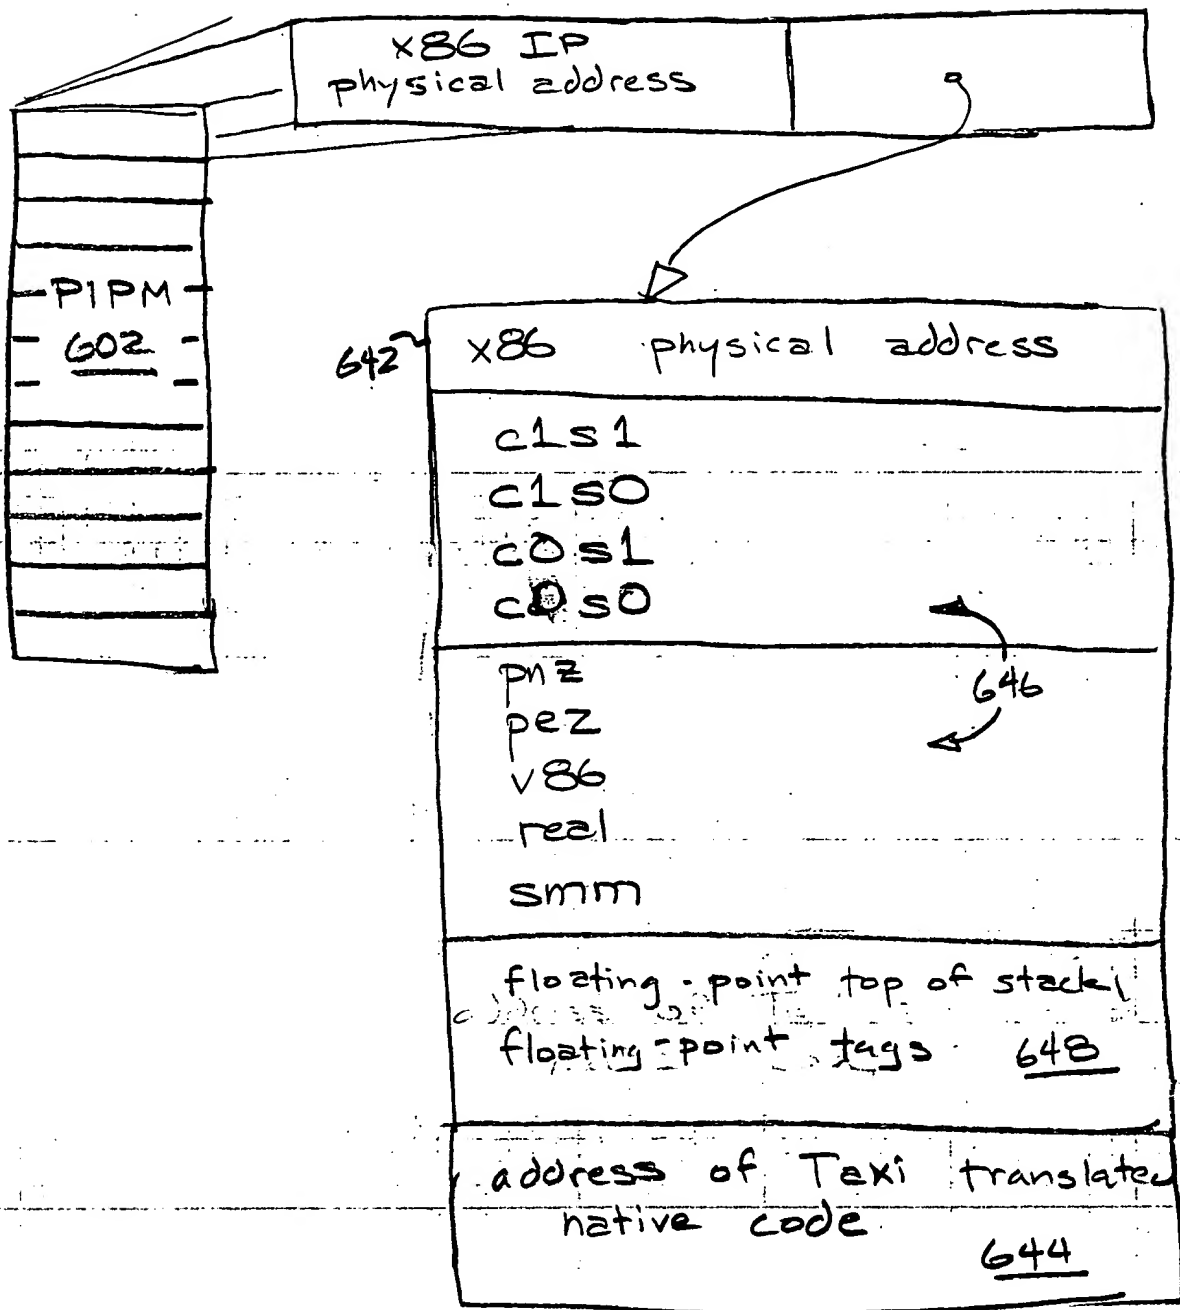 x86 IP
physical address
PIPM
602
642
x86 physical address
c1s1
c1s0
c0s1
c0s0
646
pnz
pez
v86
real
smm
floating-point top of stack,
floating-point tags 648
address of Taxi translated
native code
644